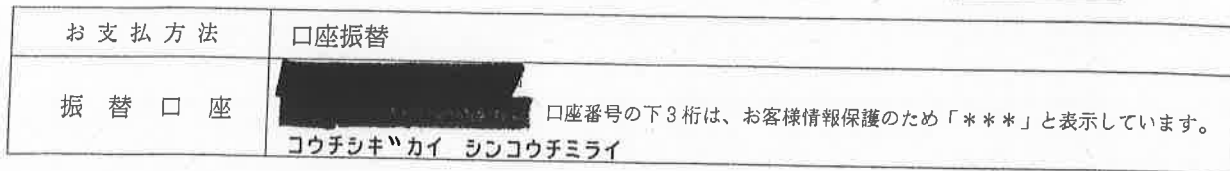 お支払方法
口座振替
振替口座
口座番号の下3桁は、お客様情報保護のため「***」と表示しています。
コウチシギカイ シンコウチミライ